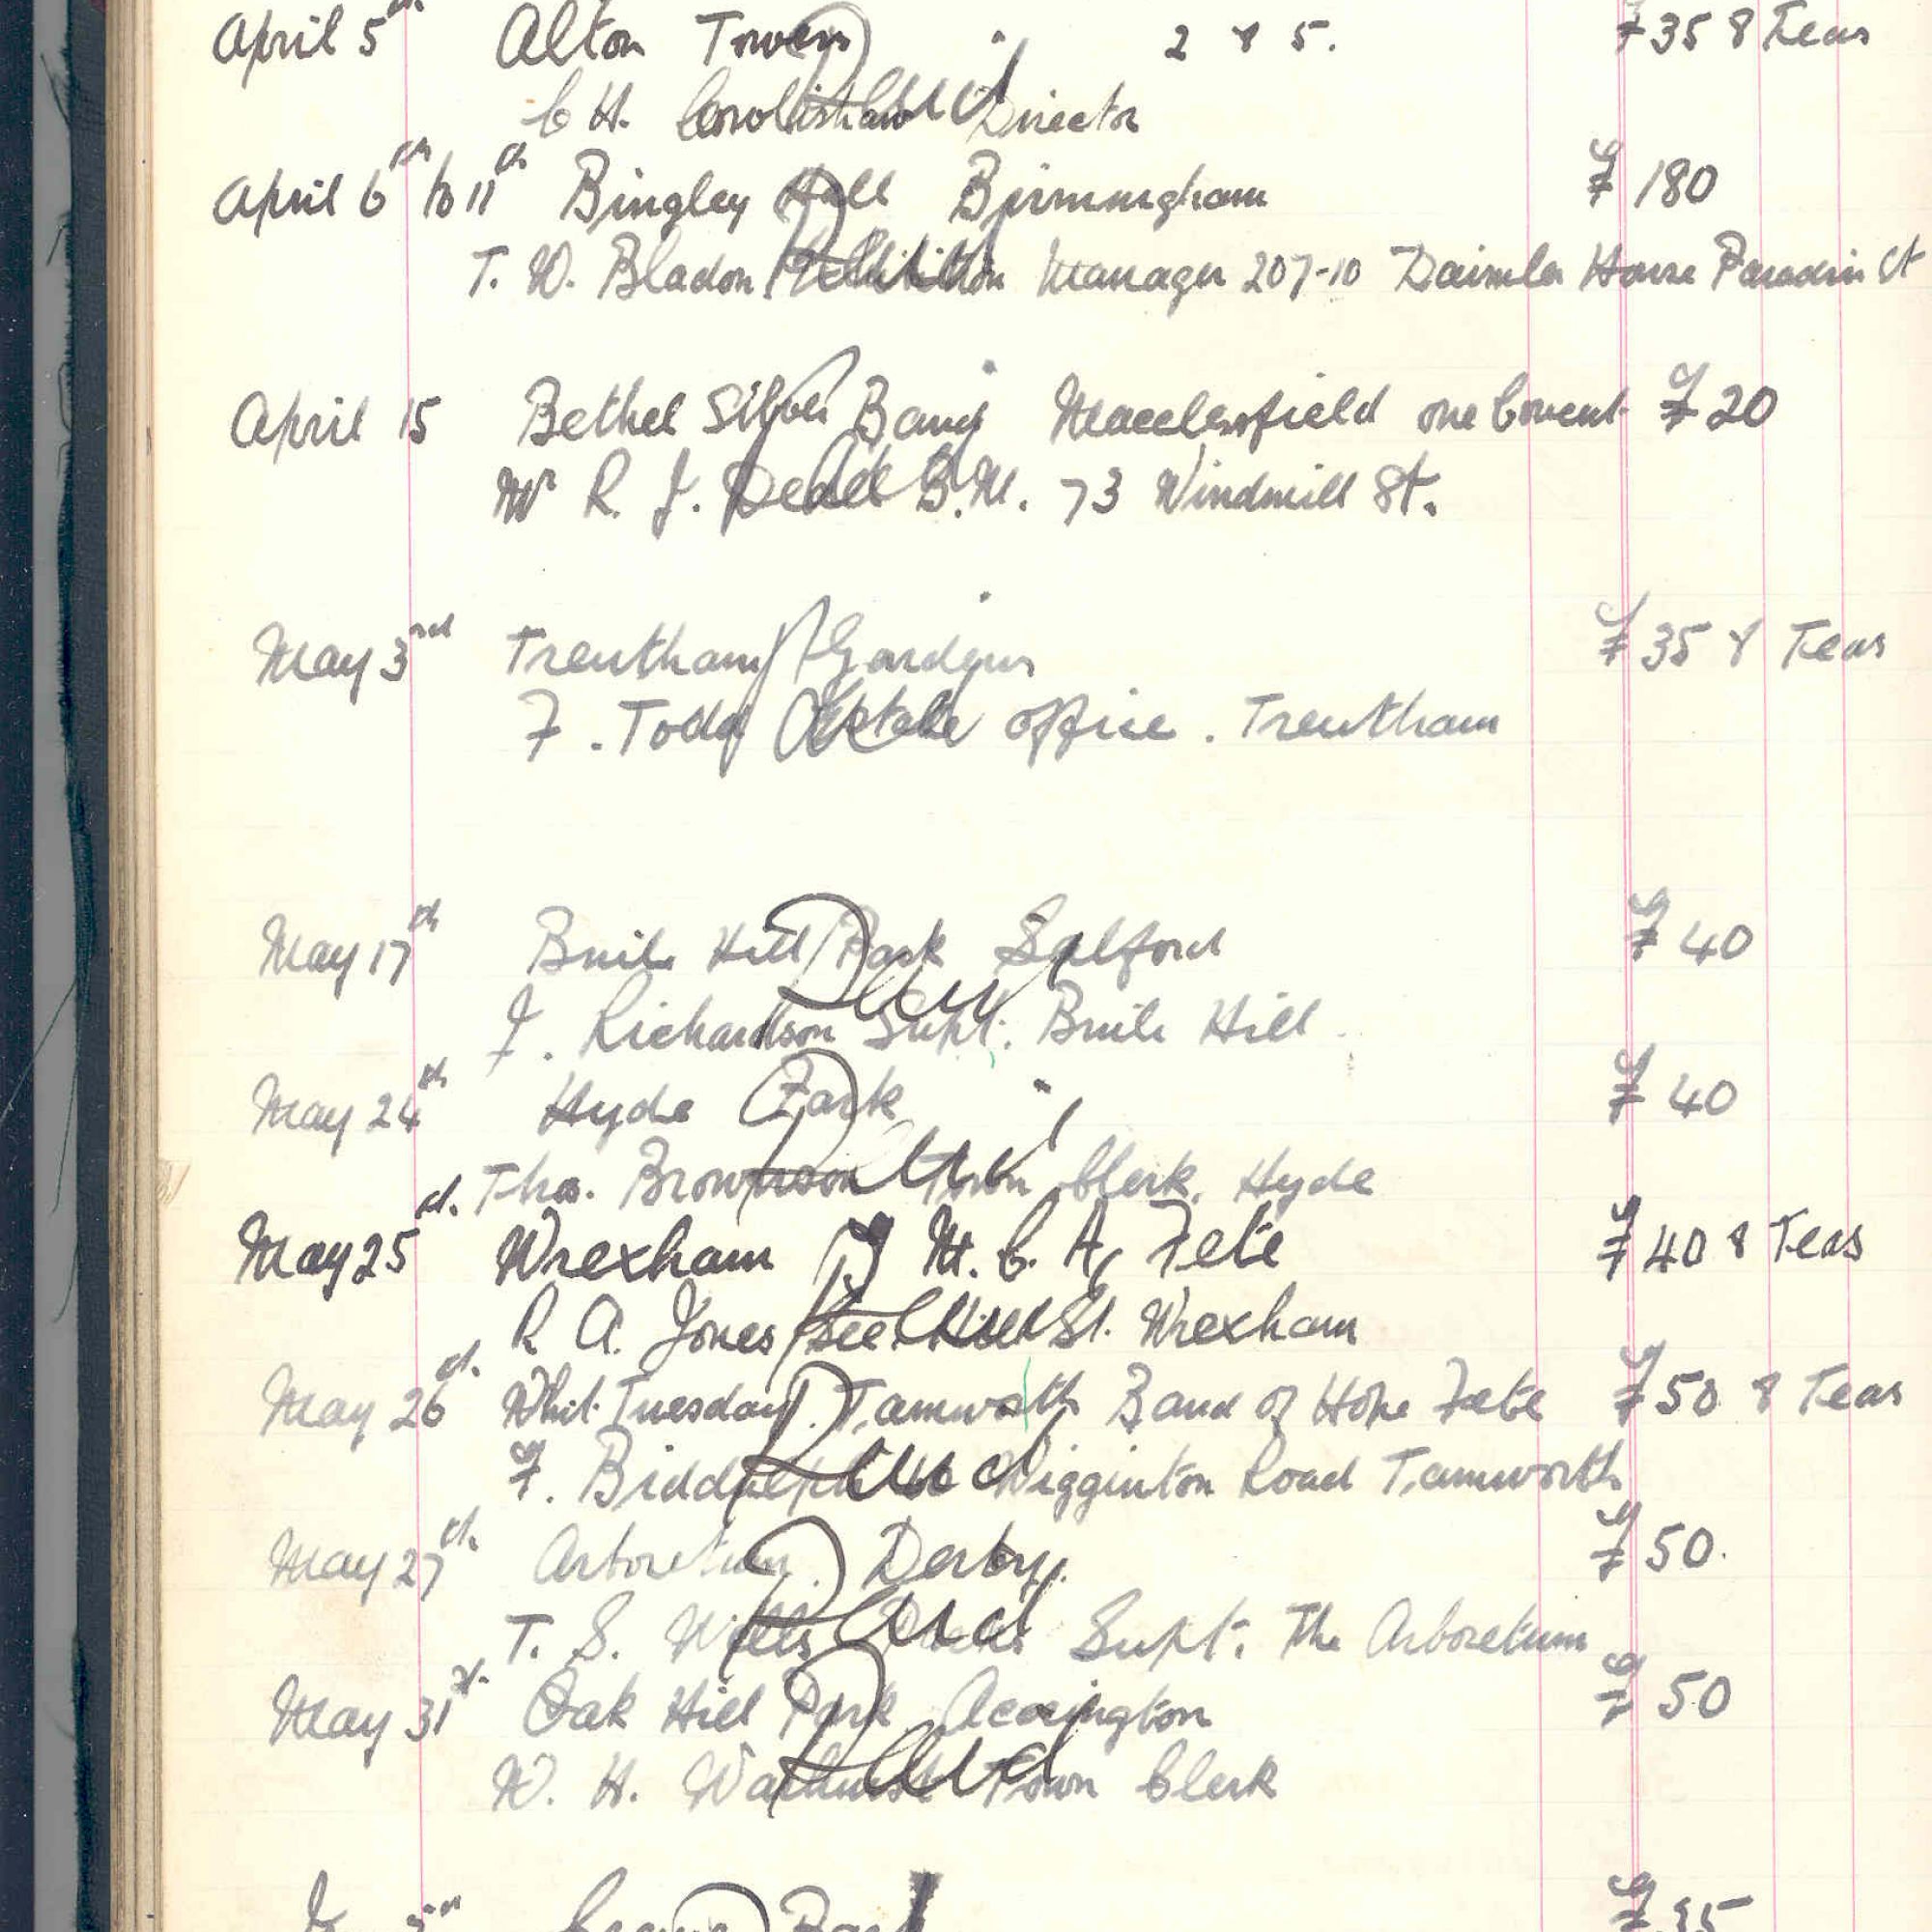 April 5th Alton Towers 2 & 5. £35 & Teas
C H. Director
April 6th to 11th Bingley Hall Birmingham £180
T. W. Bladon Exhibition Manager 207-10 Daimler House Paradise St
April 15 Bethel Silver Band Macclesfield one Concert £20
Mr R. J. B.M. 73 Windmill St.
May 3rd Trentham Gardens £35 & Teas
F. Todd Estate Office. Trentham
May 17th Buile Hill Park Salford £40
Paid
J. Richardson Supt. Buile Hill
May 24th Hyde Park £40
Paid
Thos. Brownson Town Clerk, Hyde
May 25th. Wrexham Y M. C. A, Fete £40 & Teas
R A. Jones Sec Hill St. Wrexham
May 26th. Whit Tuesday. Tamworth Band of Hope Fete £50 & Teas
Paid
F. Biddulph Wigginton Road Tamworth
May 27th. Arboretum. Derby. £50.
Paid
T. S. Wells Parks Supt. The Arboretum
May 31st. Oak Hill Park Accrington £50
Paid
W. H. Warhurst Town Clerk
Park £35